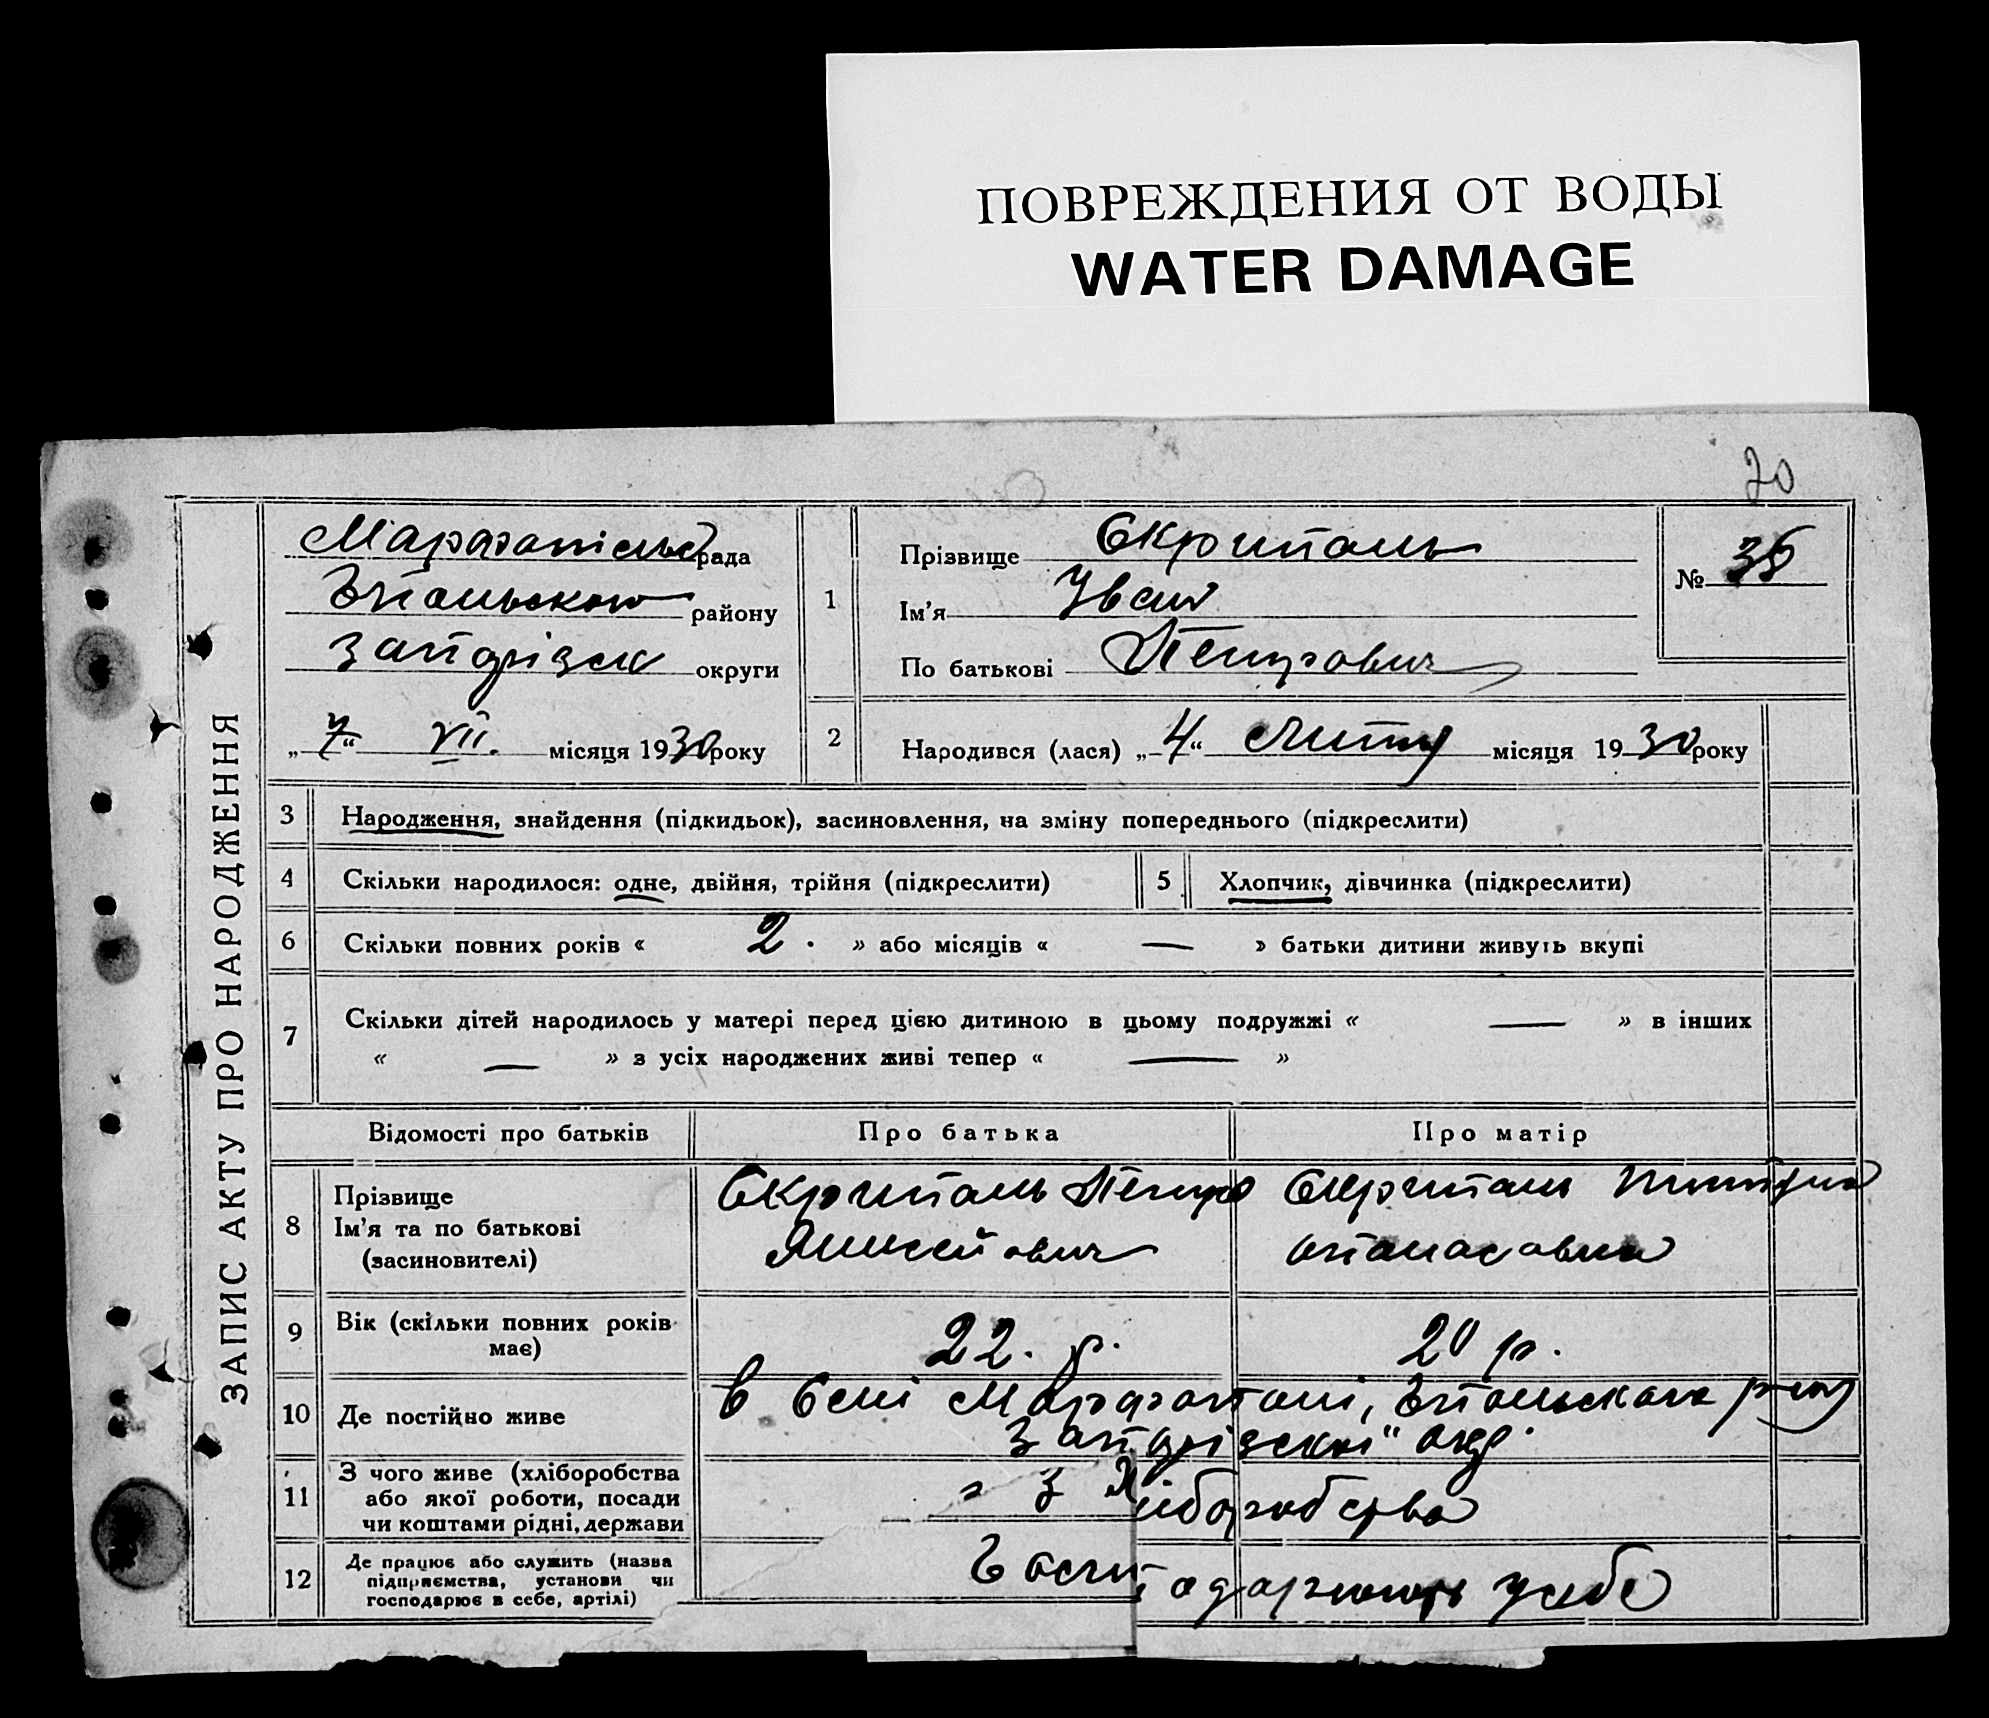 ПОВРЕЖДЕНИЯ ОТ ВОДЫ
WATER DAMAGE
20
ЗАПИС АКТУ ПРО НАРОДЖЕННЯ
рада
району
округи
„7“ VII. місяця 1930 року
1
Прізвище Скрипаль
Ім’я Іван
По батькові Петрович
№ 35
2
Народився (лася) „4“ Липня місяця 1930 року
3 Народження, знайдення (підкидьок), засиновлення, на зміну попереднього (підкреслити)
4 Скільки народилося: одне, двійня, трійня (підкреслити)
5 Хлопчик, дівчинка (підкреслити)
6 Скільки повних років « 2. » або місяців « — » батьки дитини живуть вкупі
7 Скільки дітей народилось у матері перед цією дитиною в цьому подружжі « — » в інших
« — » з усіх народжених живі тепер « — »
Відомості про батьків Про батька Про матір
8 Прізвище
Ім’я та по батькові
(засиновителі)
Скрипаль Петро
Скрипаль
9 Вік (скільки повних років
має)
22. р.
20 р.
10 Де постійно живе
в Селі
окр.
11 З чого живе (хліборобства
або якої роботи, посади
чи коштами рідні, держави
з Хліборобства
12 Де працює або служить (назва
підприємства, установи чи
господарює в себе, артілі)
Господарюють у себе